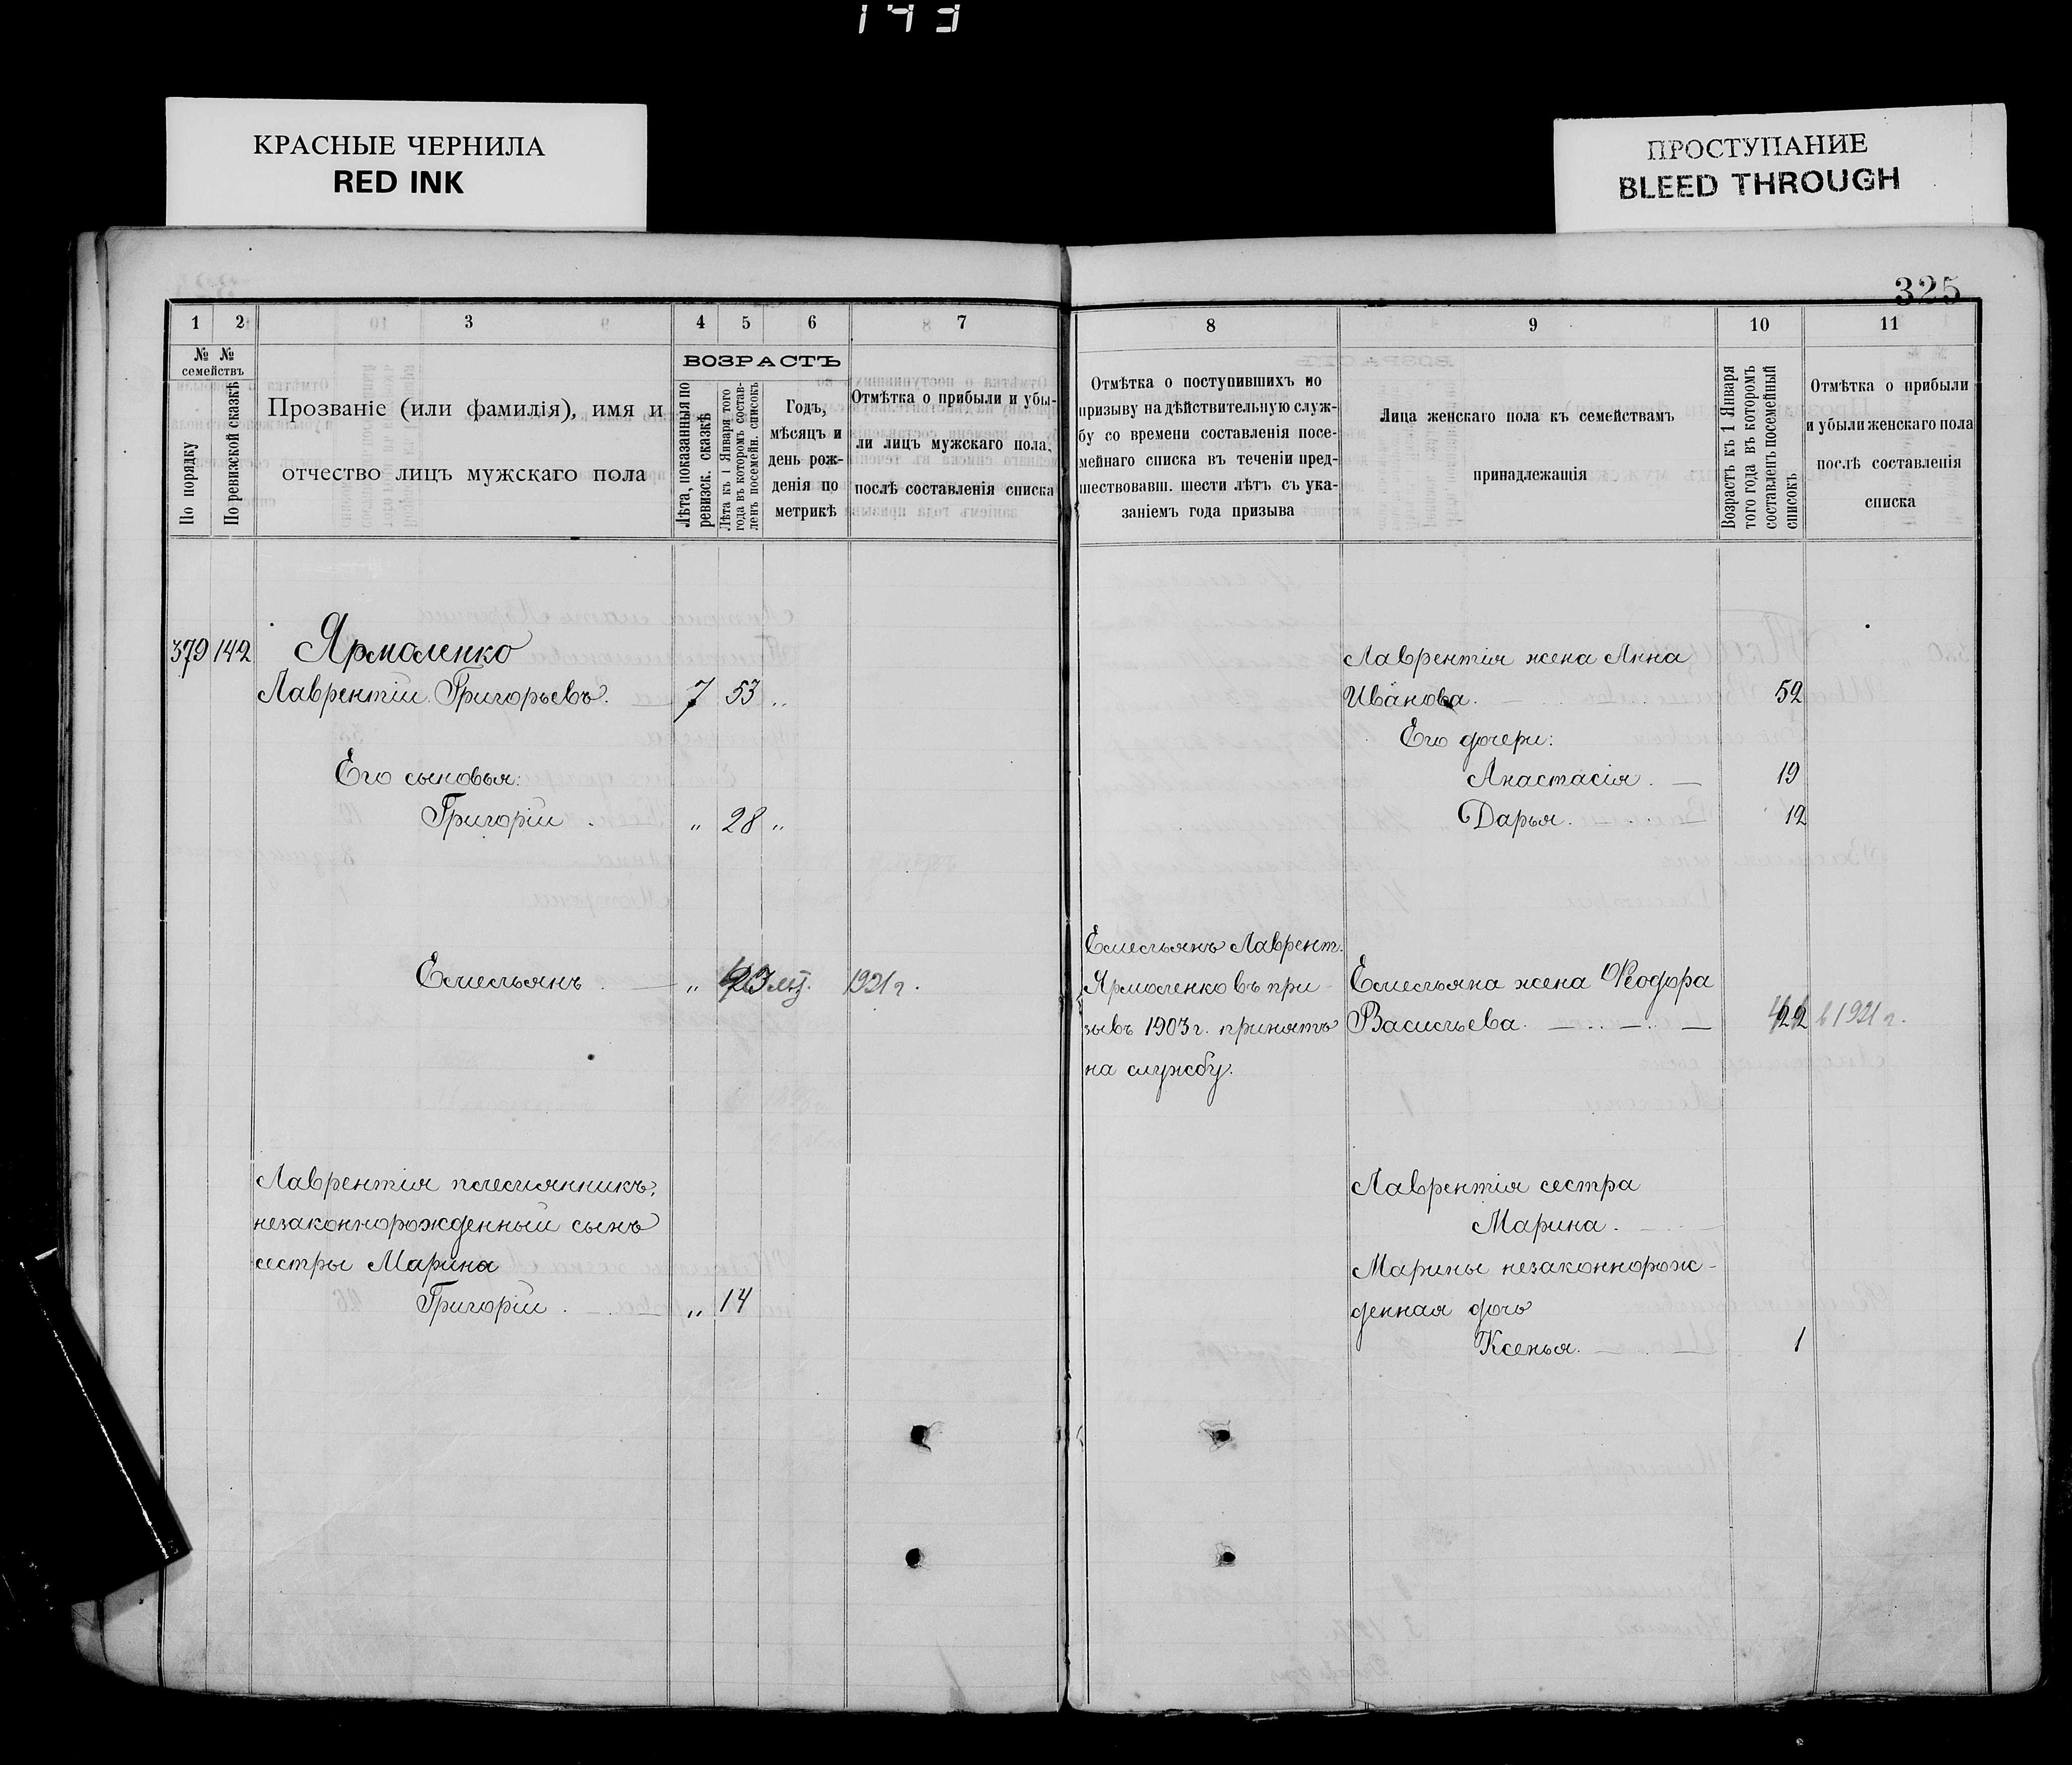 143
КРАСНЫЕ ЧЕРНИЛА
RED INK
ПРОСТУПАНИЕ
BLEED THROUGH
325
1 2 3 4 5 6 7
№ №
семействъ
По порядку
По ревизской сказкѣ
Прозваніе (или фамилія), имя и
отчество лицъ мужскаго пола
ВОЗРАСТЪ
Лѣта, показанныя по
ревизск. сказкѣ
Лѣта къ 1 Января того
года въ которомъ состав-
ленъ посемейн. списокъ
Годъ,
мѣсяцъ и
день рож-
денія по
метрикѣ
Отмѣтка о прибыли и убы-
ли лицъ мужскаго пола,
послѣ составленія списка
8 9 10 11
Отмѣтка о поступившихъ по
призыву на дѣйствительную служ-
бу со времени составленія посе-
мейнаго списка въ теченіи пред-
шествовавш. шести лѣтъ съ ука-
заніемъ года призыва
Лица женскаго пола къ семействамъ
принадлежащія
Возрастъ къ 1 Января
того года въ которомъ
составленъ посемейный
списокъ
Отмѣтка о прибыли
и убыли женскаго пола
послѣ составленія
списка
379 142 Ярмоленко
Лаврентій Григорьевъ. 7 53 „
Его сыновья:
Григорій . „ 28 „
Емельянъ . — „ 23 1921 г.
Лаврентія племянникъ,
незаконнорожденный сынъ
сестры Марина
Григорій . — „ 14
Емельянъ Лаврент.
Ярмоленко въ при-
зывъ 1903 г. принятъ
на службу.
Лаврентія жена Анна
Иванова. 52
Его дочери:
Анастасія . — 19
Дарья . — 12
Емельяна жена Ѳеодора
Васильева. — 22 в 1921 г.
Лаврентія сестра
Марина.
Марины незаконнорож-
денная дочь
Ксенья. — 1